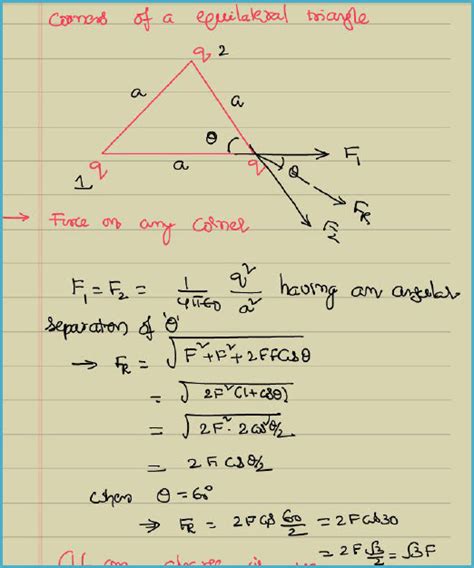 Corners of a equilateral triangle
q 2
a
a
θ
F₁
1 q
a
q
θ
F_R
F₂
→ Force on any corner
F₁ = F₂ = 1/4πε₀ q²/a² having an angular
separation of 'θ'
→ F_R = √F²+F²+2FFcosθ
= √2F²(1+cosθ)
= √2F². 2cos²θ/2
= 2F cosθ/2
when θ = 60°
⇒ F_R = 2F cos 60/2 = 2F cos30
= 2F √3/2 = √3F